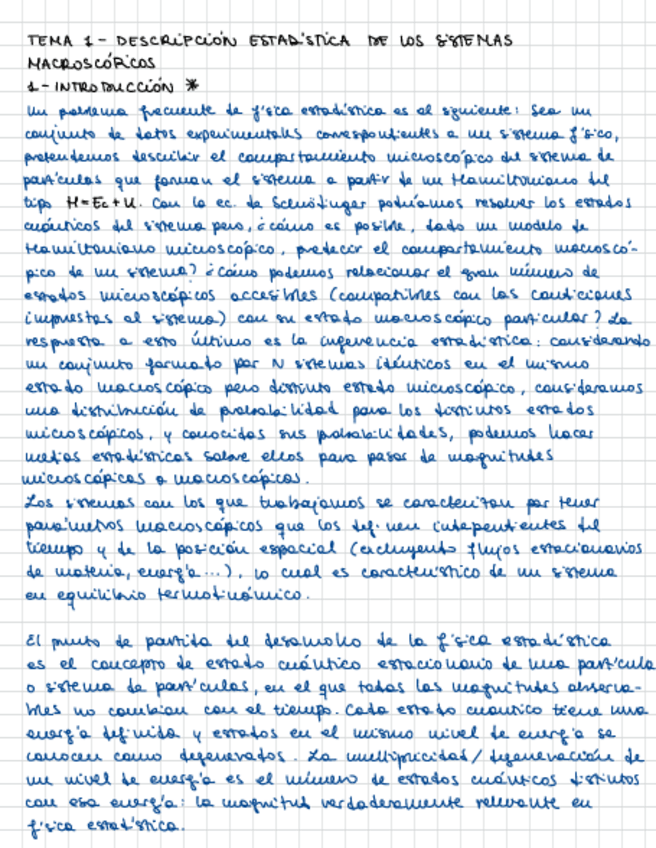 TEMA 1 - DESCRIPCIÓN ESTADÍSTICA DE LOS SISTEMAS
MACROSCÓPICOS
1 - INTRODUCCIÓN *
Un problema frecuente de física estadística es el siguiente: Sea un
conjunto de datos experimentales correspondientes a un sistema físico,
pretendemos describir el comportamiento microscópico del sistema de
partículas que forman el sistema a partir de un Hamiltoniano del
tipo H=Ec+U. Con la ec. de Schrödinger podríamos resolver los estados
cuánticos del sistema pero, ¿cómo es posible, dado un modelo de
Hamiltoniano microscópico, predecir el comportamiento macroscó-
pico de un sistema? ¿Cómo podemos relacionar el gran número de
estados microscópicos accesibles (compatibles con las condiciones
impuestas al sistema) con su estado macroscópico particular? La
respuesta a esto último es la inferencia estadística: considerando
un conjunto formado por N sistemas idénticos en el mismo
estado macroscópico pero distinto estado microscópico, consideramos
una distribución de probabilidad para los distintos estados
microscópicos, y conocidas sus probabilidades, podemos hacer
medias estadísticas sobre ellos para pasar de magnitudes
microscópicas a macroscópicas.
Los sistemas con los que trabajamos se caracterizan por tener
parámetros macroscópicos que los definen independientes del
tiempo y de la posición espacial (excluyendo flujos estacionarios
de materia, energía...), lo cual es característico de un sistema
en equilibrio termodinámico.
El punto de partida del desarrollo de la física estadística
es el concepto de estado cuántico estacionario de una partícula
o sistema de partículas, en el que todas las magnitudes observa-
bles no cambian con el tiempo. Cada estado cuántico tiene una
energía definida y estados en el mismo nivel de energía se
conocen como degenerados. La multiplicidad/degeneración de
un nivel de energía es el número de estados cuánticos distintos
con esa energía: la magnitud verdaderamente relevante en
física estadística.